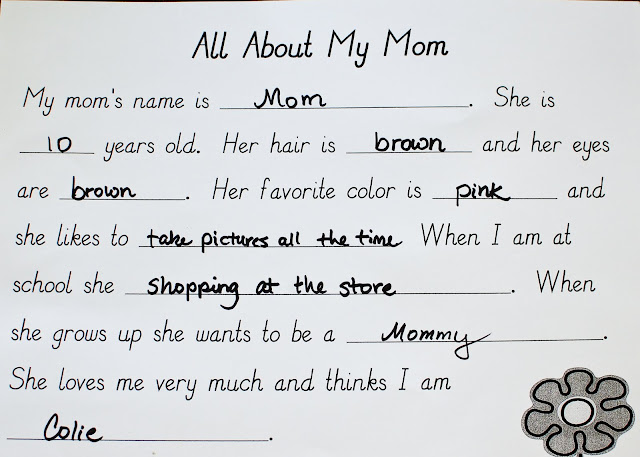 All About My Mom
My mom's name is Mom. She is
10 years old. Her hair is brown and her eyes
are brown. Her favorite color is pink and
she likes to take pictures all the time When I am at
school she shopping at the store. When
she grows up she wants to be a Mommy.
She loves me very much and thinks I am
Colie.